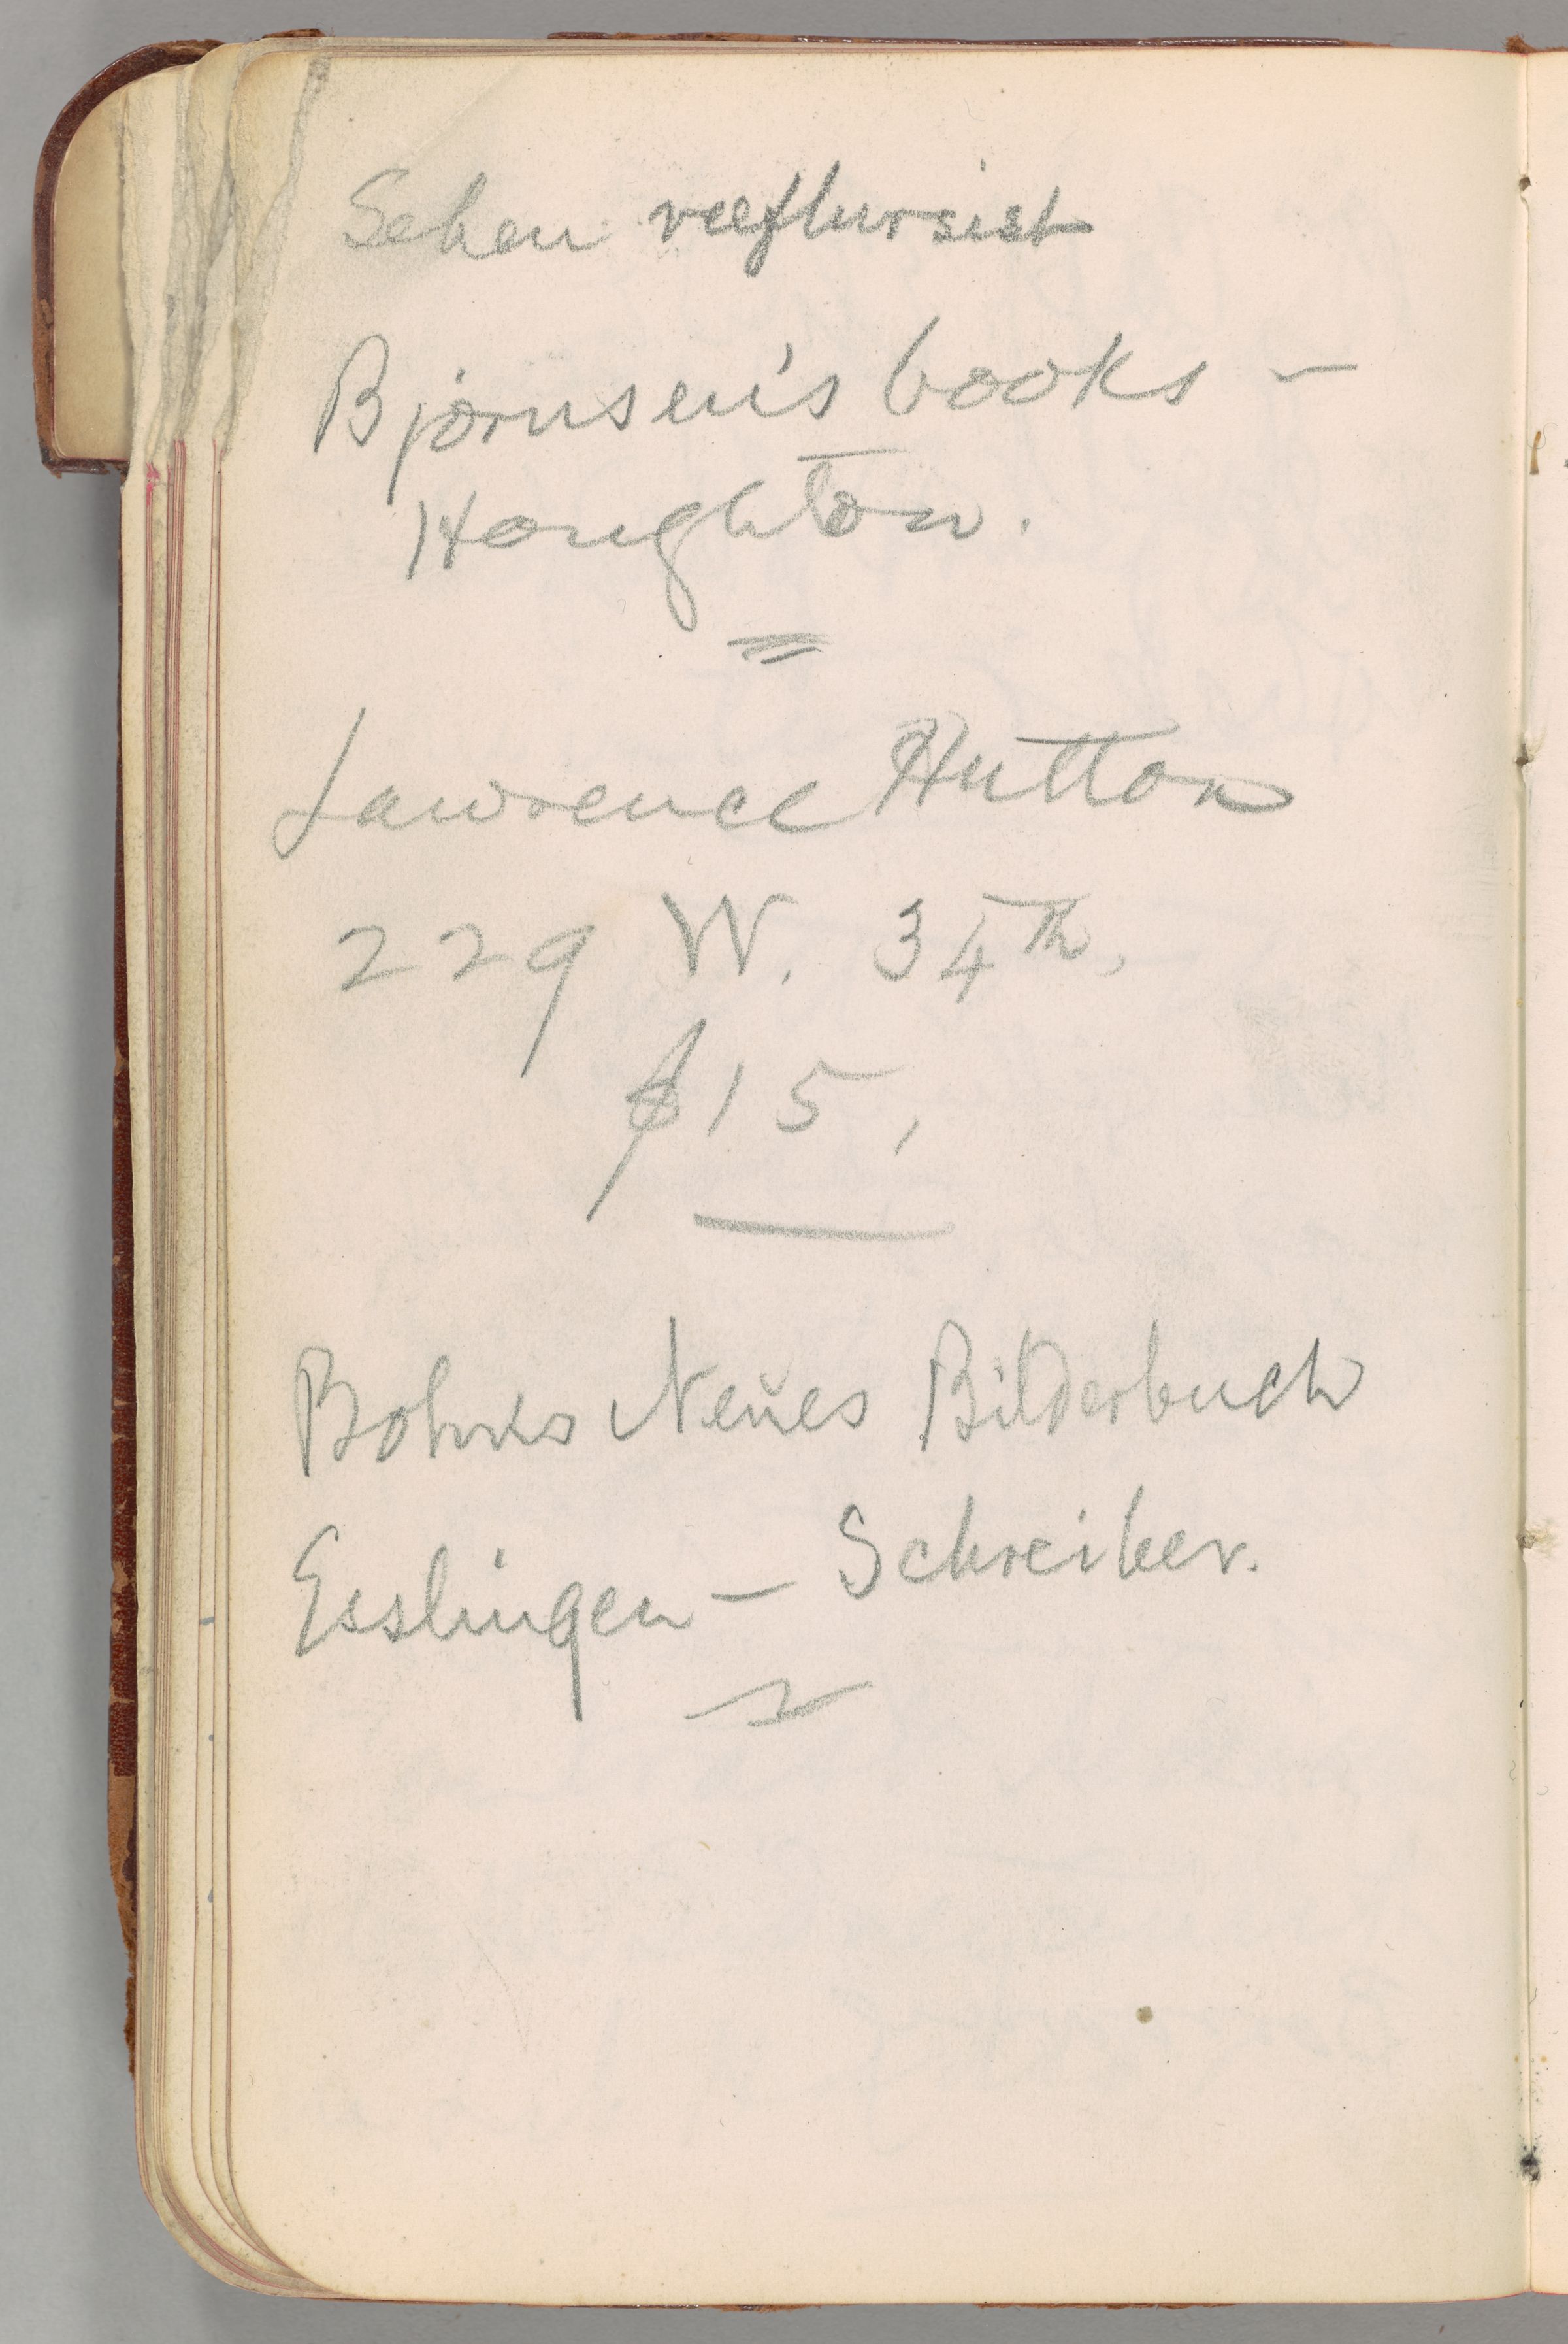 Sehen
Bjornsen's books —
Houghton.
Lawrence Hutton
229 W. 34th,
$15,
Neues Bilderbuch
Esslingen — Schreiber.